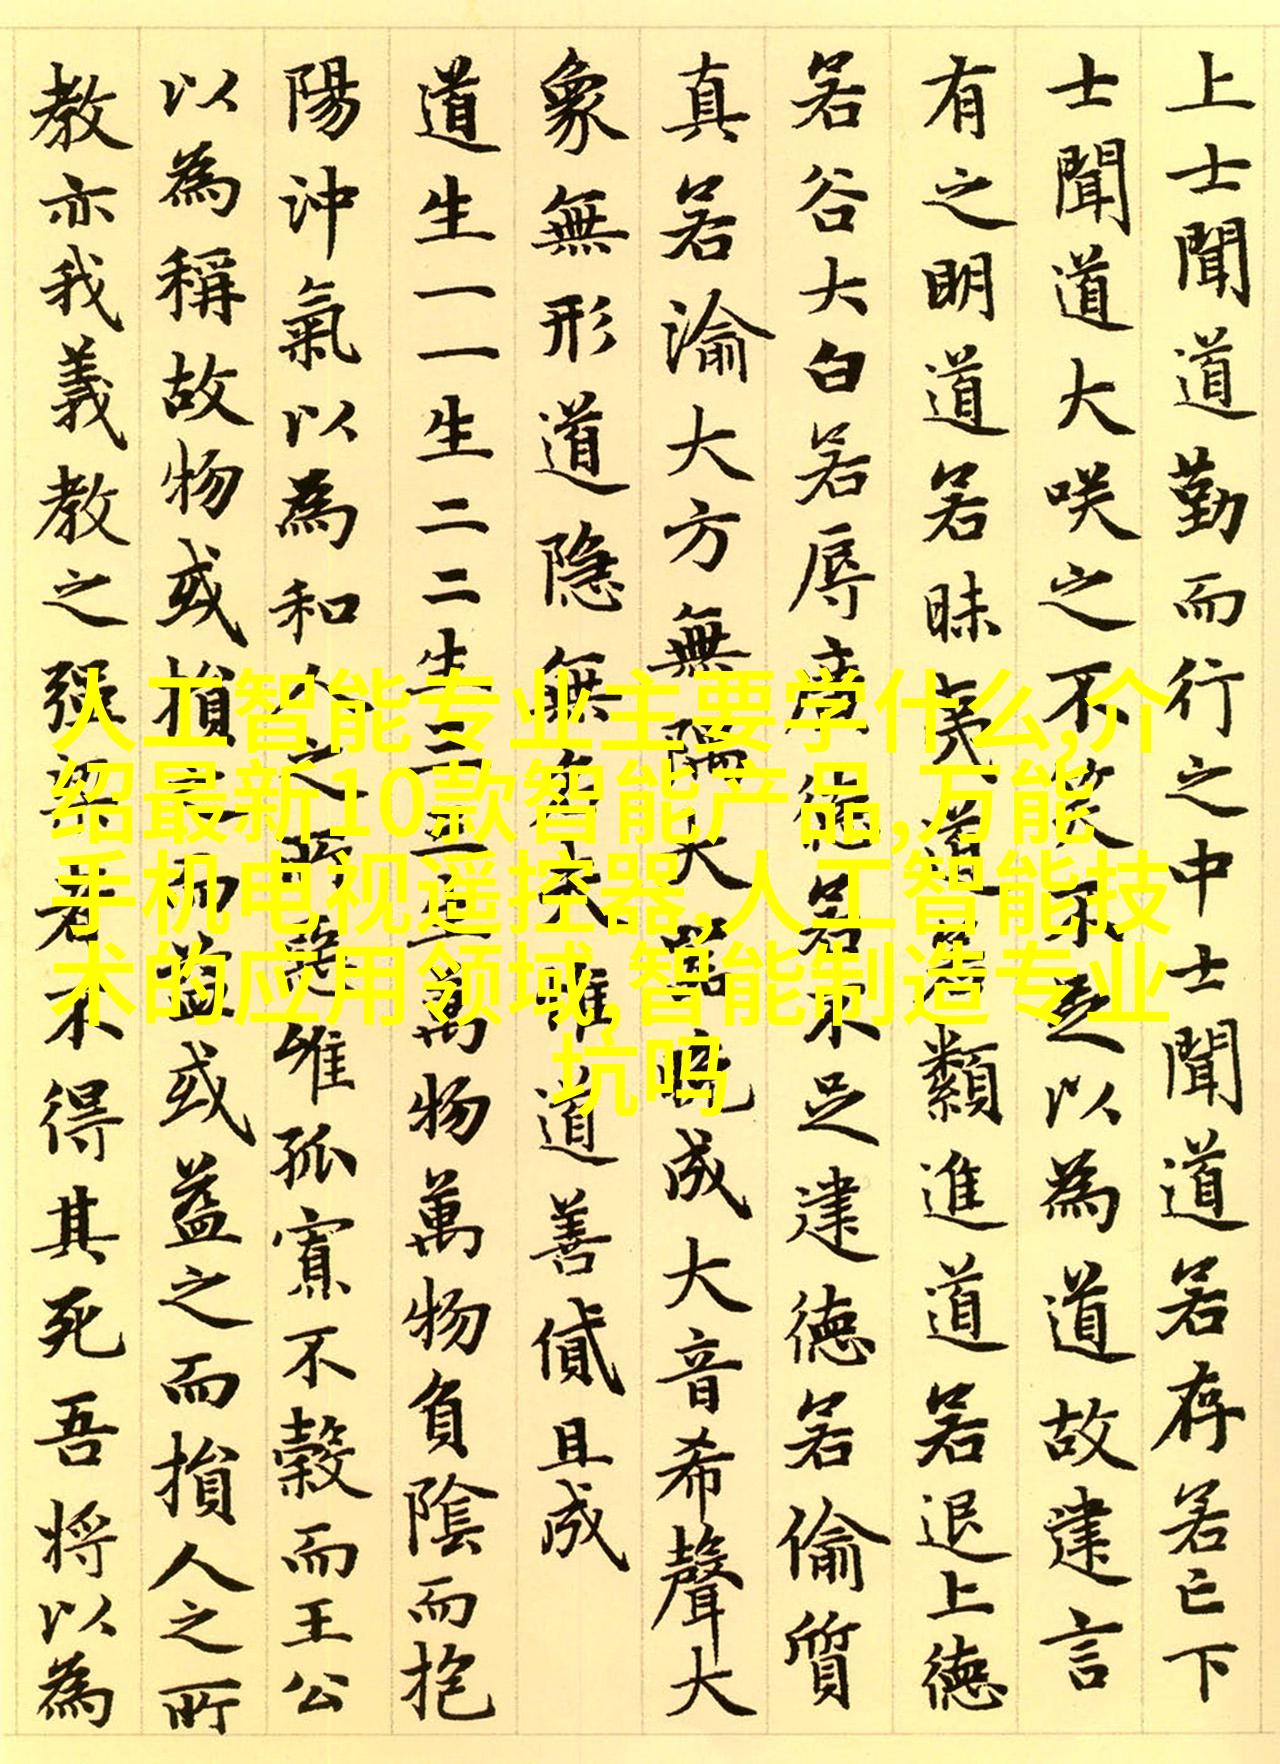 上士聞道勤而行之中士聞道若存若亡下
士聞道大咲之不笑不足以為道故建言
有之明道若昧夷道若類進道若退上德
若谷大白若辱廣德若不足建德若偷質
真若渝大方無隅大器晚成大音希聲大
象無形道隐無名夫唯道善貸且成
道生一一生二二生三三生萬物萬物負陰而抱
陽沖氣以為和人之所惡唯孤寡不穀而王公
以為稱故物或損之而益或益之而損人之所
教亦我義教之强梁者不得其死吾将以為
人工智能专业主要学什么,介
绍最新10款智能产品,万能
手机电视遥控器,人工智能技
术的应用领域,智能制造专业
坑吗